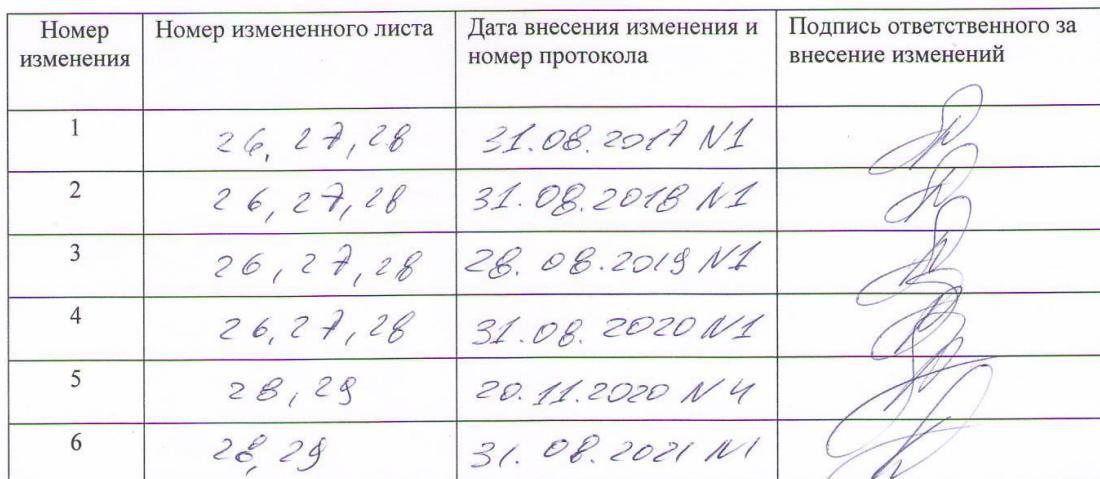 Номер изменения | Номер измененного листа | Дата внесения изменения и номер протокола | Подпись ответственного за внесение изменений
1 | 26, 27, 28 | 31.08.2017 N1
2 | 26, 27, 28 | 31.08.2018 N1
3 | 26, 27, 28 | 28.08.2019 N1
4 | 26, 27, 28 | 31.08.2020 N1
5 | 28, 29 | 20.11.2020 N4
6 | 28, 29 | 31.08.2021 N1